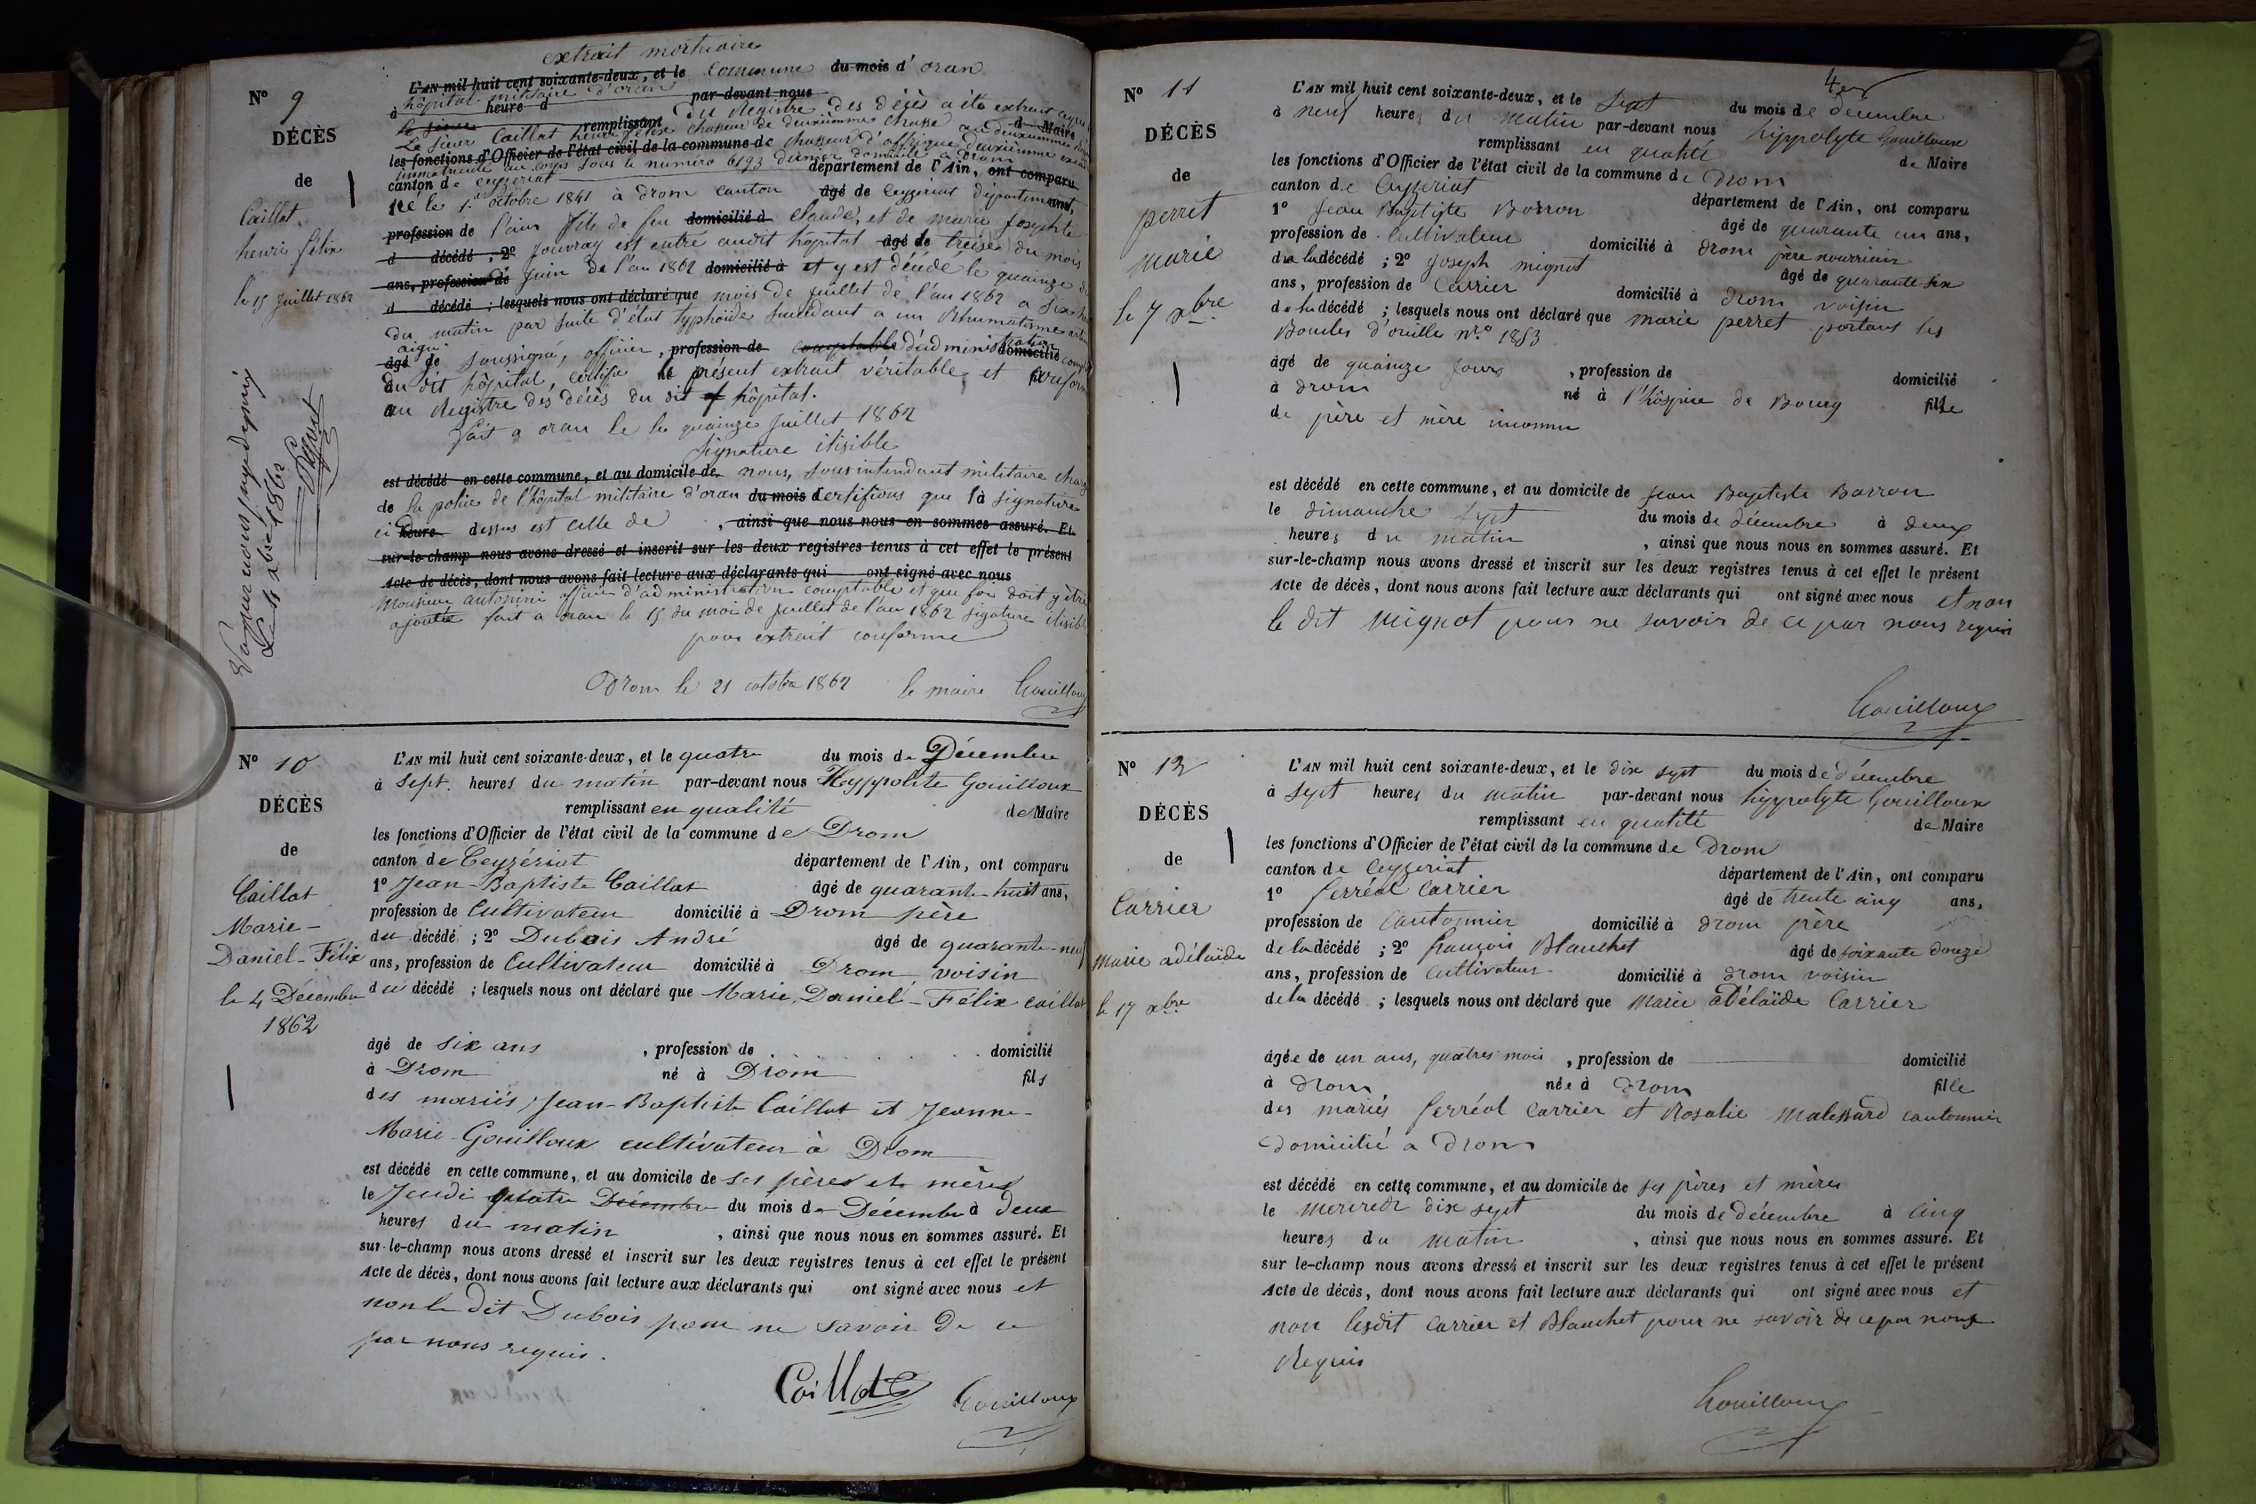 extrait mortuaire
N° 9
L'AN mil huit cent soixante-deux, et le commune du mois d'oran
hôpital militaire d'oran
à heure d par-devant nous
DÉCÈS
du Registre des décès a été extrait
le sieur remplissant de Maire
Le Sieur Caillat henri félix chasseur de deuxième classe au deuxième
les fonctions d'Officier de l'état civil de la commune de chasseur d'affrique deuxième
immatriculé au corps sous le numéro 6193 dernier domicile à Drom
de
canton de ceyzeriat département de l'Ain, ont comparu
né le 1er octobre 1841 à drom canton âgé de ceyzeriat département ans,
Caillat
profession de l'ain fils de feu domicilié à claude, et de marie josephte
henri félix
d décédé ; 2° Jouvray est entré audit hôpital âgé de treise du mois
ans, profession de juin de l'an 1862 domicilié à et y est décédé le quainze
le 15 juillet 1862
d décédé ; lesquels nous ont déclaré que mois de juillet de l'an 1862 a six
du matin par suite d'état typhoïde succédant a un Rhumatisme
aigu
âgé de soussigné, officier, profession de comptable d'administration domicilié
du dit hôpital, certifie le né présent extrait véritable et fil conforme
au Registre des décès du dit hôpital.
fait a oran le le quainze juillet 1862
signature ilisible
est décédé en cette commune, et au domicile de nous, sous intendant militaire
de la police de l'hôpital militaire d'oran du mois certifions que là signature
ci heure dessus est celle de , ainsi que nous nous en sommes assuré. Et
sur-le-champ nous avons dressé et inscrit sur les deux registres tenus à cet effet le présent
Acte de décès, dont nous avons fait lecture aux déclarants qui ont signé avec nous
Monsieur antonini officier d'administration comptable et que foi doit y être
ajoutée fait a oran le 15 du mois de juillet de l'an 1862 signature ilisible
pour extrait conforme
Drom le 21 octobre 1862 le maire Gouilloux
N° 10
L'AN mil huit cent soixante-deux, et le quatre du mois de Décembre
à sept heures du matin par-devant nous Hyppolite Gouilloux
DÉCÈS
remplissant en qualité de Maire
les fonctions d'Officier de l'état civil de la commune de Drom
de
canton de Ceyzériat département de l'Ain, ont comparu
Caillat
1° Jean-Baptiste Caillat âgé de quarante-huit ans,
Marie-
profession de Cultivateur domicilié à Drom père
Daniel-Félix
du décédé ; 2° Dubois André âgé de quarante-neuf
ans, profession de Cultivateur domicilié à Drom voisin
le 4 Décembre
du décédé ; lesquels nous ont déclaré que Marie, Daniel-Félix caillat
1862
âgé de six ans , profession de domicilié
à Drom né à Drom fils
des mariés Jean-Baptiste Caillat et Jeanne-
Marie-Gouilloux cultivateur à Drom
est décédé en cette commune, et au domicile de ses pères et mères
le Jeudi quatre Décembre du mois de Décembre à deux
heures du matin , ainsi que nous nous en sommes assuré. Et
sur-le-champ nous avons dressé et inscrit sur les deux registres tenus à cet effet le présent
Acte de décès, dont nous avons fait lecture aux déclarants qui ont signé avec nous et
non le dit Dubois pour ne savoir de ce
par nous requis.
Caillat Gouilloux
N° 11
L'AN mil huit cent soixante-deux, et le sept du mois de décembre
à neuf heures du matin par-devant nous hyppolyte Gouilloux
DÉCÈS
remplissant en qualité de Maire
les fonctions d'Officier de l'état civil de la commune de Drom
de
canton de Ceyzeriat département de l'Ain, ont comparu
perret
1° Jean Baptiste Borron âgé de quarante un ans,
marie
profession de Cultivateur domicilié à drom père nourricier
de la décédé ; 2° Joseph mignot âgé de quarante six
ans, profession de Carrier domicilié à drom voisin
le 7 xbre
de la décédé ; lesquels nous ont déclaré que marie perret portant les
Boucles d'oreille nro 1853
âgé de quainze jours , profession de domicilié
à drom né à l'hôspice de Bourg fille
de père et mère inconnu
est décédé en cette commune, et au domicile de Jean Baptiste Barron
le dimanche sept du mois de décembre à deux
heures du matin , ainsi que nous nous en sommes assuré. Et
sur-le-champ nous avons dressé et inscrit sur les deux registres tenus à cet effet le présent
Acte de décès, dont nous avons fait lecture aux déclarants qui ont signé avec nous et non
le dit Mignot pour ne savoir de ce par nous requis
Gouilloux
N° 12
L'AN mil huit cent soixante-deux, et le dix sept du mois de décembre
à sept heures du matin par-devant nous hyppolyte Gouilloux
DÉCÈS
remplissant en qualité de Maire
les fonctions d'Officier de l'état civil de la commune de Drom
de
canton de Ceyzeriat département de l'Ain, ont comparu
Carrier
1° ferréol Carrier âgé de trente cinq ans,
profession de cantonnier domicilié à drom père
marie adélaïde
de la décédé ; 2° françois Blanchet âgé de soixante douze
ans, profession de cultivateur domicilié à drom voisin
le 17 xbre
de la décédé ; lesquels nous ont déclaré que Marie adélaïde Carrier
âgée de un ans, quatres mois , profession de domicilié
à drom née à drom fille
des mariés ferréol Carrier et Rosalie Malessard cantonnier
domicilié a drom
est décédé en cette commune, et au domicile de ses pères et mères
le mercredi dix sept du mois de décembre à Cinq
heures du matin , ainsi que nous nous en sommes assuré. Et
sur le-champ nous avons dressé et inscrit sur les deux registres tenus à cet effet le présent
Acte de décès, dont nous avons fait lecture aux déclarants qui ont signé avec nous et
non lesdit Carrier et Blanchet pour ne savoir de ce par nous
Requis
Gouilloux